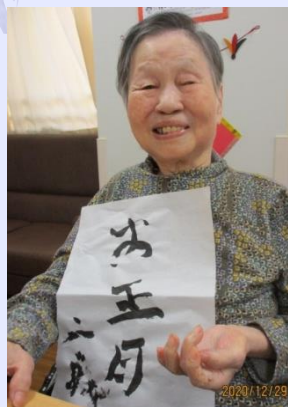 お正月
2020/12/29